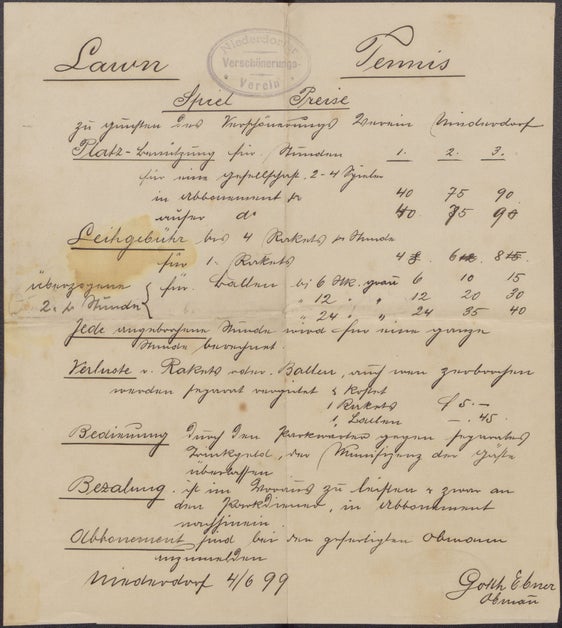 Lawn Tennis
Niederdorfer
Verschönerungs-
Verein
Spiel Preise
zu gunsten des Verschönerungs Verein Niederdorf
Platz-Benützung für Stunden 1. 2. 3.
für eine Gesellschaft 2-4 Spieler
in Abbonement pr 40 75 90
außer do
Leihgebühr bei 4 Rakets pr Stunde
für 1 Rakets 4 6 8
überzogene für Ballen bei 6 Stk. grau 6 10 15
2. Stunde " 12 " " 12 20 30
" 24 " " 24 35 40
Jede angebrochene Stunde wird für eine ganze
Stunde berechnet.
Verluste v. Rakets oder Ballen, auch wen zerbrochen
werden separat vergütet & kostet
1 Rakets f 5.—
1 Ballen —. 45.
Bedienung durch den Parkwarter gegen separates
Trinkgeld, der Munifizenz der Gäste
überlassen
Bezalung ist im Voraus zu leisten & zwar an
den Parkdiener, in Abbonement
nachhinein.
Abbonement sind bei den gefertigten Obmann
anzumelden
Niederdorf 4/6 99
Goth Ebner
Obmañ